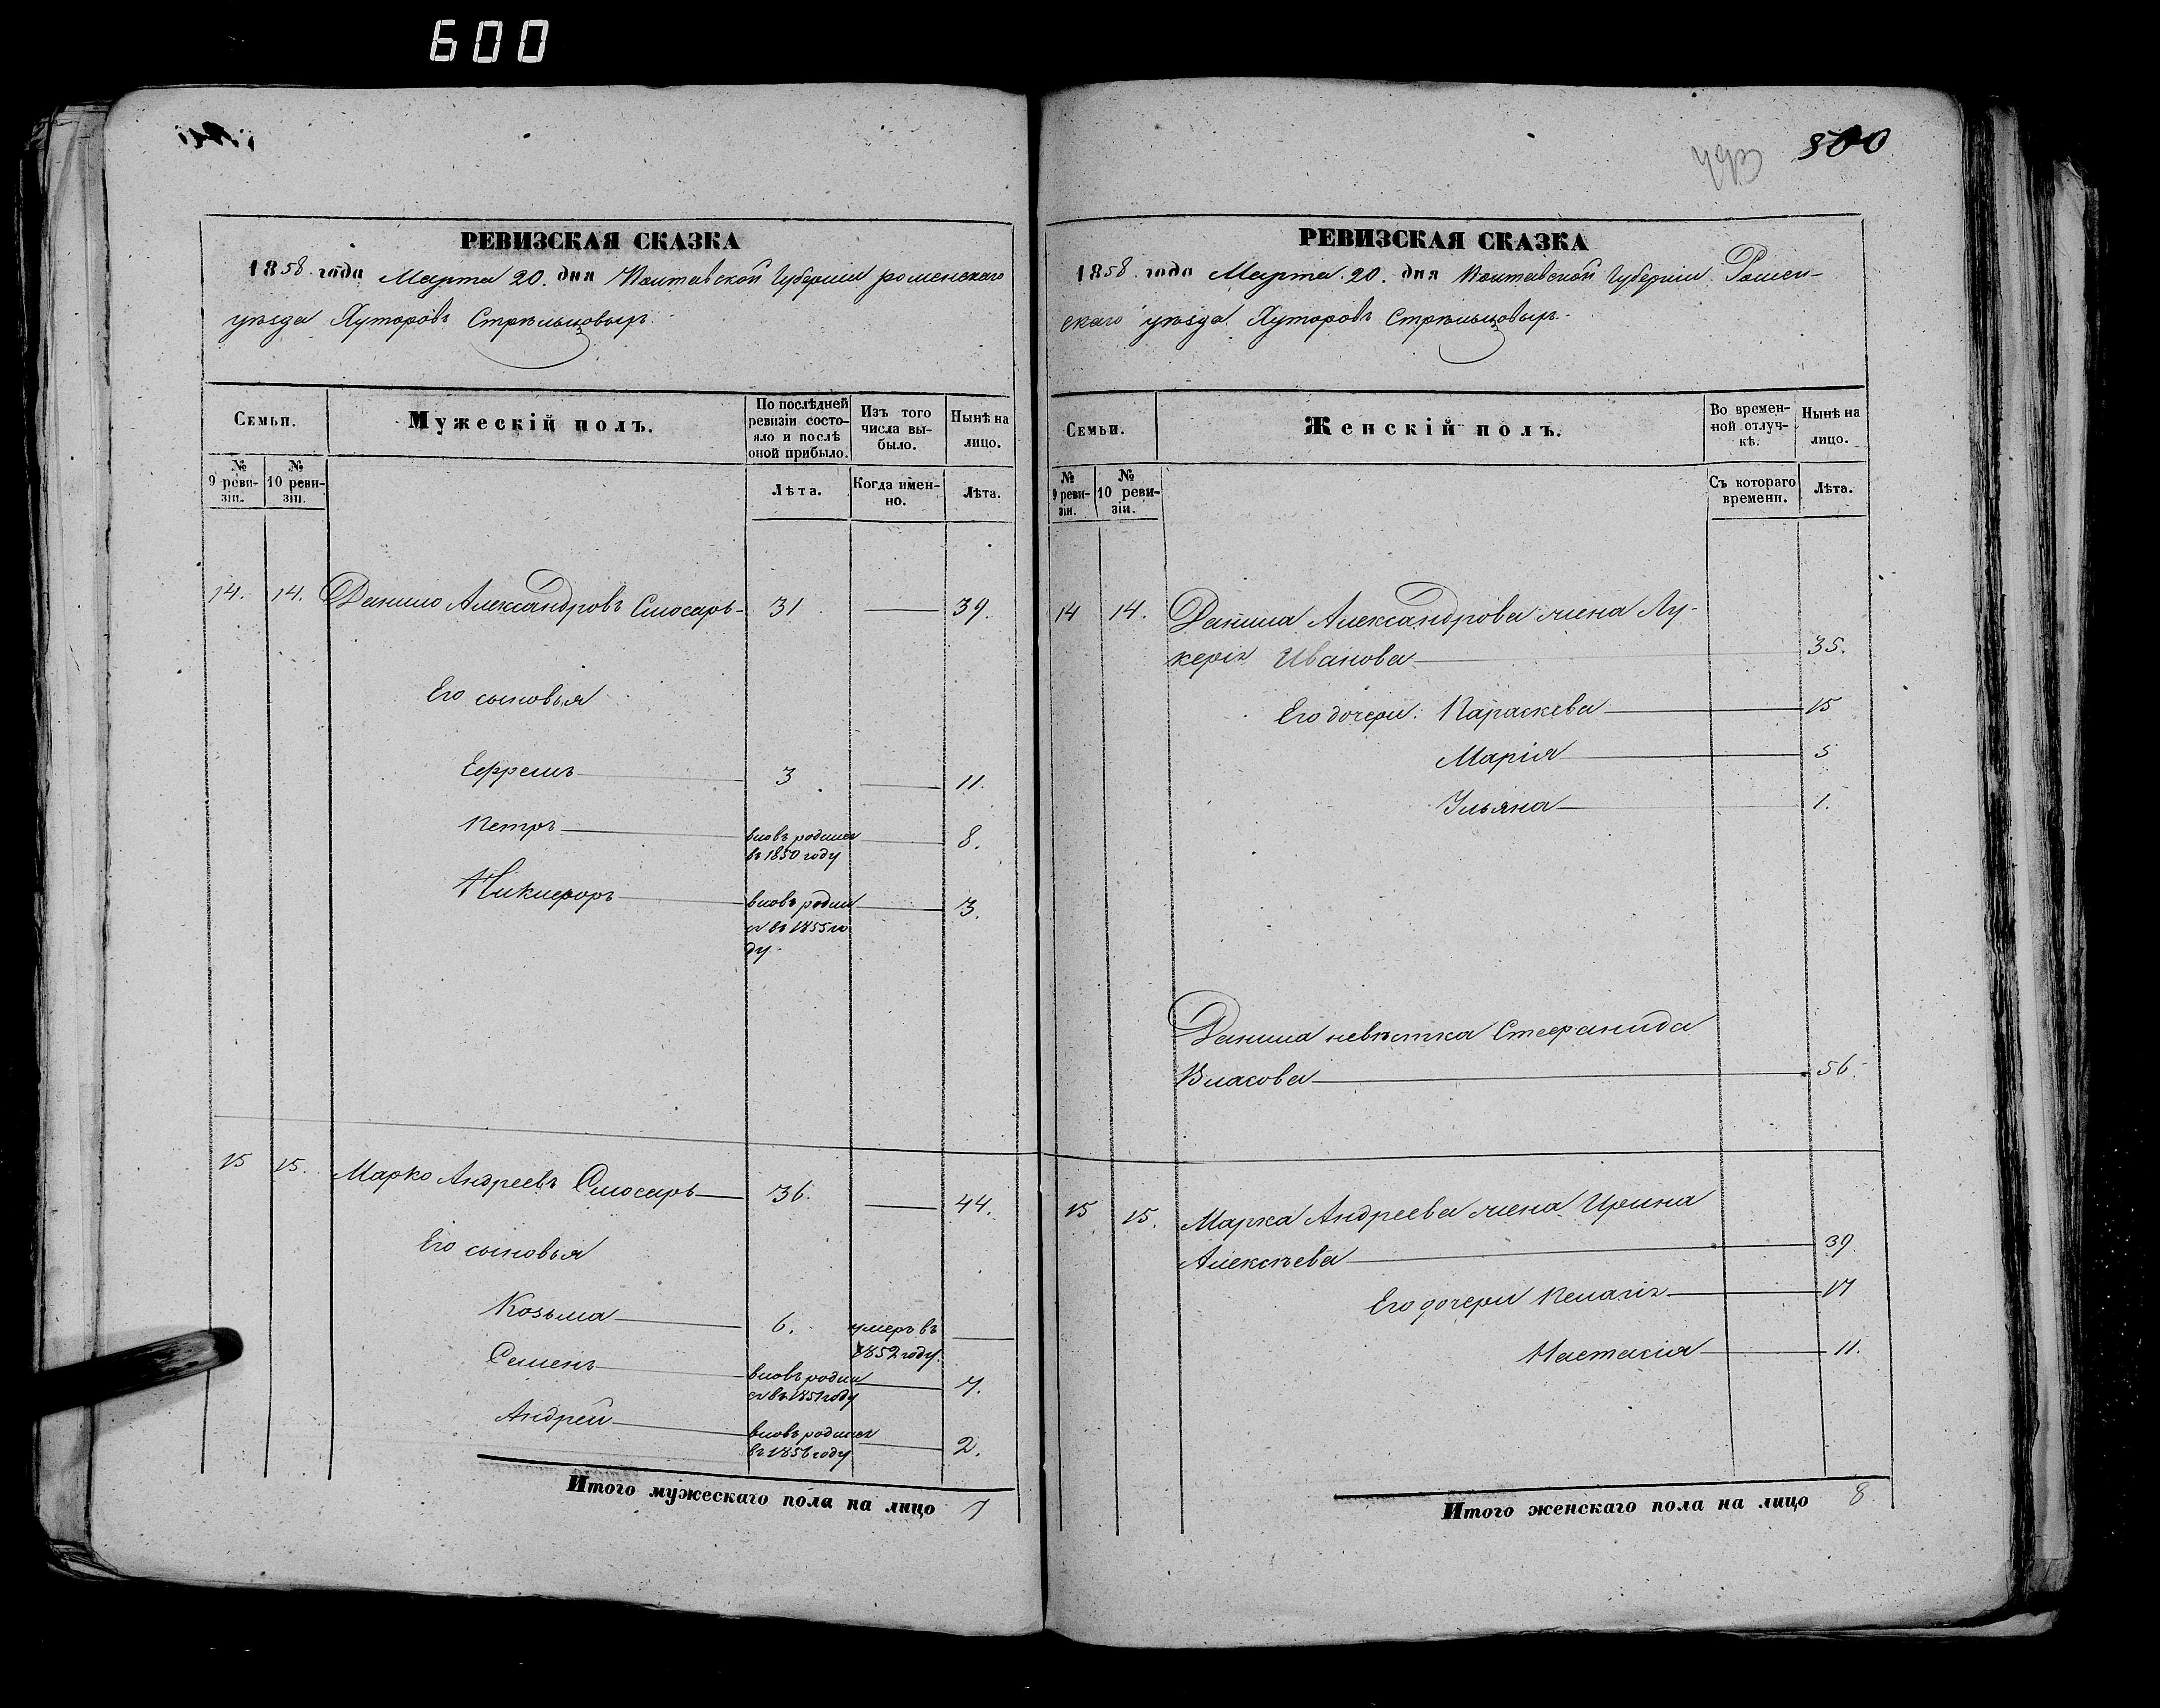 600
500
493
РЕВИЗСКАЯ СКАЗКА
1858 года Марта 20. дня Полтавской Губерніи роменскаго
уѣзда Хуторовъ Стрѣльцовыхъ.
Семьи.
Мужескій полъ.
По послѣдней ревизіи состояло и послѣ оной прибыло.
Изъ того числа выбыло.
Нынѣ на лицо.
№ 9 ревизіи.
№ 10 ревизіи.
Лѣта.
Когда именно.
Лѣта.
14. 14. Данило Александровъ Слюсарь 31 39.
Его сыновья
Ефремъ 3 11.
Петръ вновь родился въ 1850 году 8.
Никифоръ вновь родился въ 1855 году. 3.
15 15. Марко Андреевъ Слюсарь 36. 44.
Его сыновья
Козьма 6. умеръ въ 1852 году.
Семенъ вновь родился въ 1851 году 7.
Андрей вновь родился въ 1856 году 2.
Итого мужескаго пола на лицо 7
РЕВИЗСКАЯ СКАЗКА
1858 года Марта 20. дня Полтавской Губерніи Ромен-
скаго уѣзда Хуторовъ Стрѣльцовыхъ.
Семьи.
Женскій полъ.
Во временной отлучкѣ.
Нынѣ на лицо.
№ 9 ревизіи.
№ 10 ревизіи.
Съ котораго времени.
Лѣта.
14 14. Данила Александрова жена Лу-
керія Иванова 35.
Его дочери: Параскева 15
Марія 5
Ульяна 1.
Данила невѣстка Стефанида
Власова 56.
15 15. Марка Андреева жена Ирина
Алексѣева 39.
Его дочери Пелагія 17
Настасія 11.
Итого женскаго пола на лицо 8